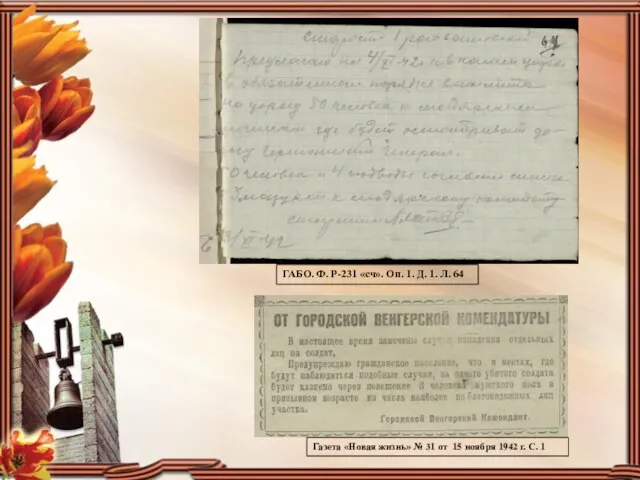 64
Старосте
Предлагаю на 4/XI-42г.
в обязательном порядке
на дорогу 50 человек к мадьярским
где будет осматривать до-
рогу германский генерал.
4 подводы
к мадьярскому коменданту
староста
3/XI-42
ГАБО. Ф. Р-231 «сч». Оп. 1. Д. 1. Л. 64
ОТ ГОРОДСКОЙ ВЕНГЕРСКОЙ КОМЕНДАТУРЫ
В настоящее время замечены случаи нападения отдельных
лиц на солдат.
Предупреждаю гражданское население, что в местах, где
будут наблюдаться подобные случаи, за одного убитого солдата
будет казнено через повешение 3 человека мужского пола в
призывном возрасте из числа наиболее неблагонадежных лиц
участка.
Городской Венгерский Комендант.
Газета «Новая жизнь» № 31 от 15 ноября 1942 г. С. 1